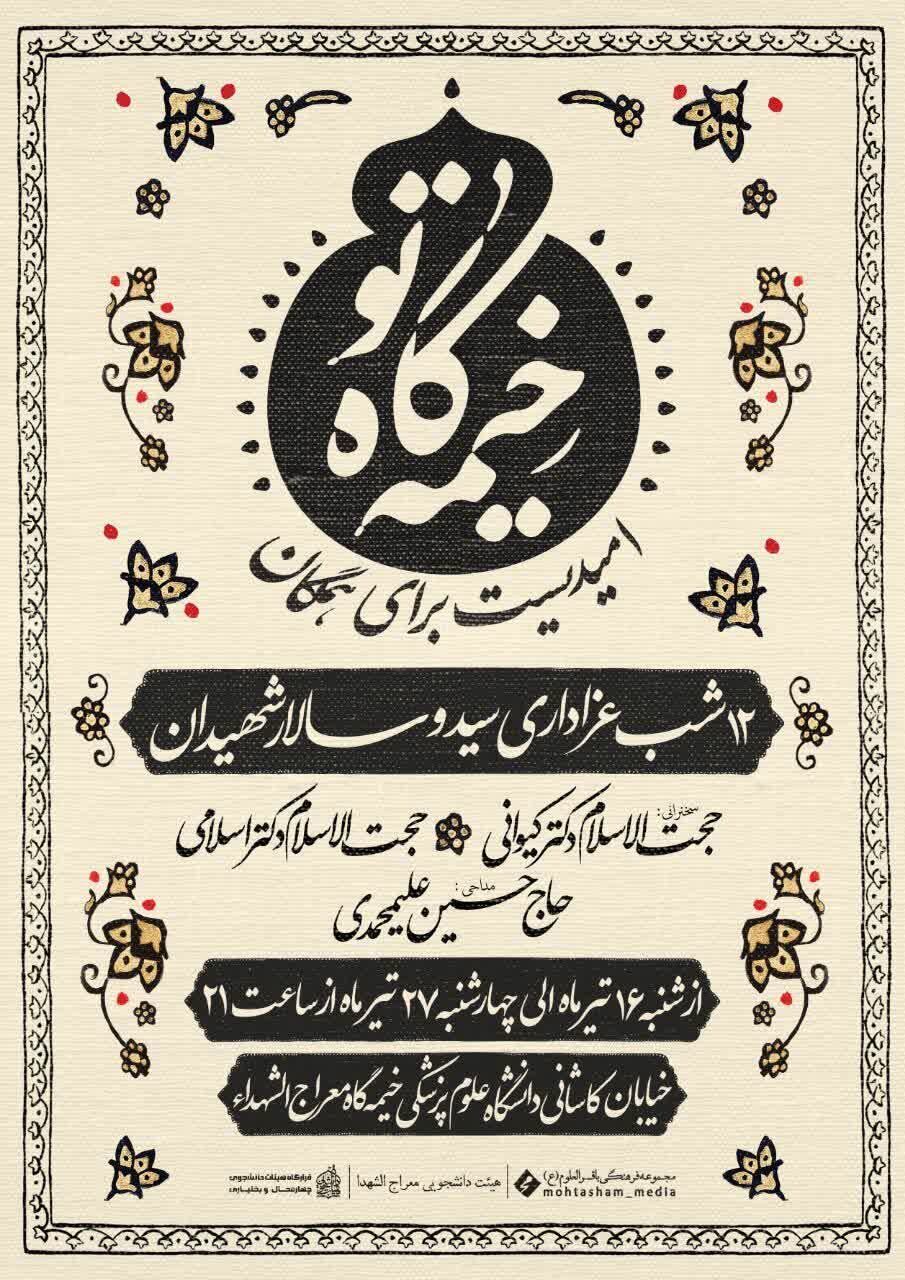 خیمه گاه تو
امیدیست برای همگان
۱۲ شب عزاداری سید و سالار شهیدان
سخنرانی: حجت الاسلام دکتر کیوانی حجت الاسلام دکتر اسلامی
مداحی: حاج حسین علیمحمدی
از شنبه ۱۶ تیر ماه الی چهارشنبه ۲۷ تیر ماه از ساعت ۲۱
خیابان کاشانی دانشگاه علوم پزشکی خیمه گاه معراج الشهداء
مجموعه فرهنگی باقرالعلوم (ع)
mohtasham_media
هیئت دانشجویی معراج الشهدا
قرارگاه هیئات دانشجویی
چهارمحال و بختیاری